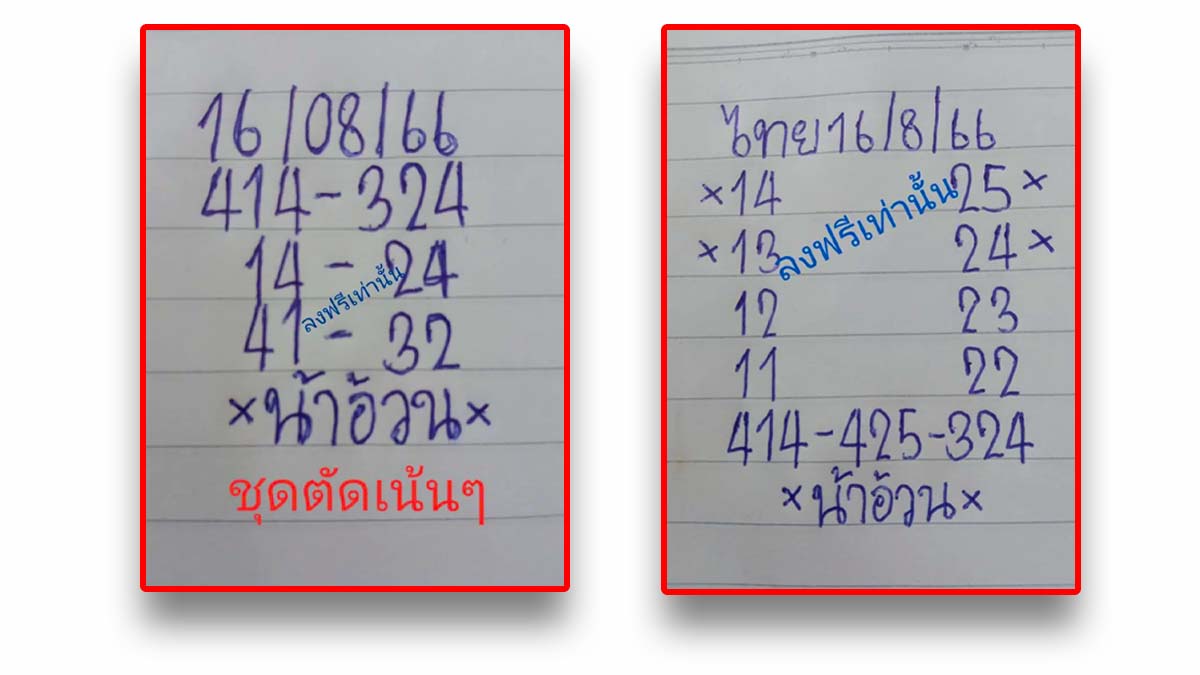 16/08/66
414-324
14-24
41-32
×น้าอ้วน×
ลงฟรีเท่านั้น
ชุดตัดเน้นๆ
ไทย16/8/66
×14 25×
×13 24×
12 23
11 22
414-425-324
×น้าอ้วน×
ลงฟรีเท่านั้น